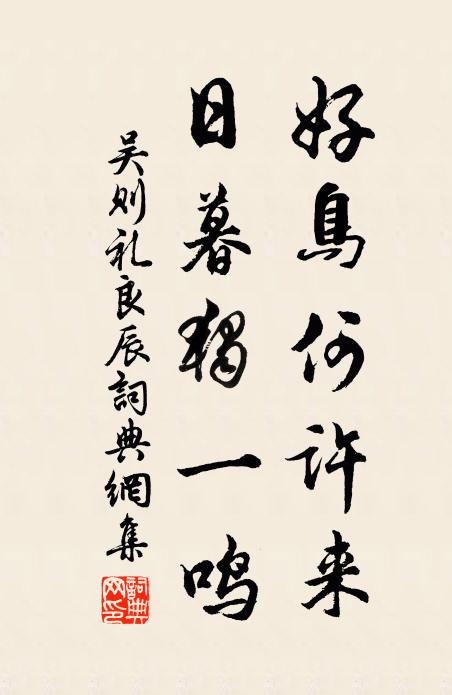 好鳥何許来
日暮獨一鳴
吴则礼良辰詞典網集
詞典网印